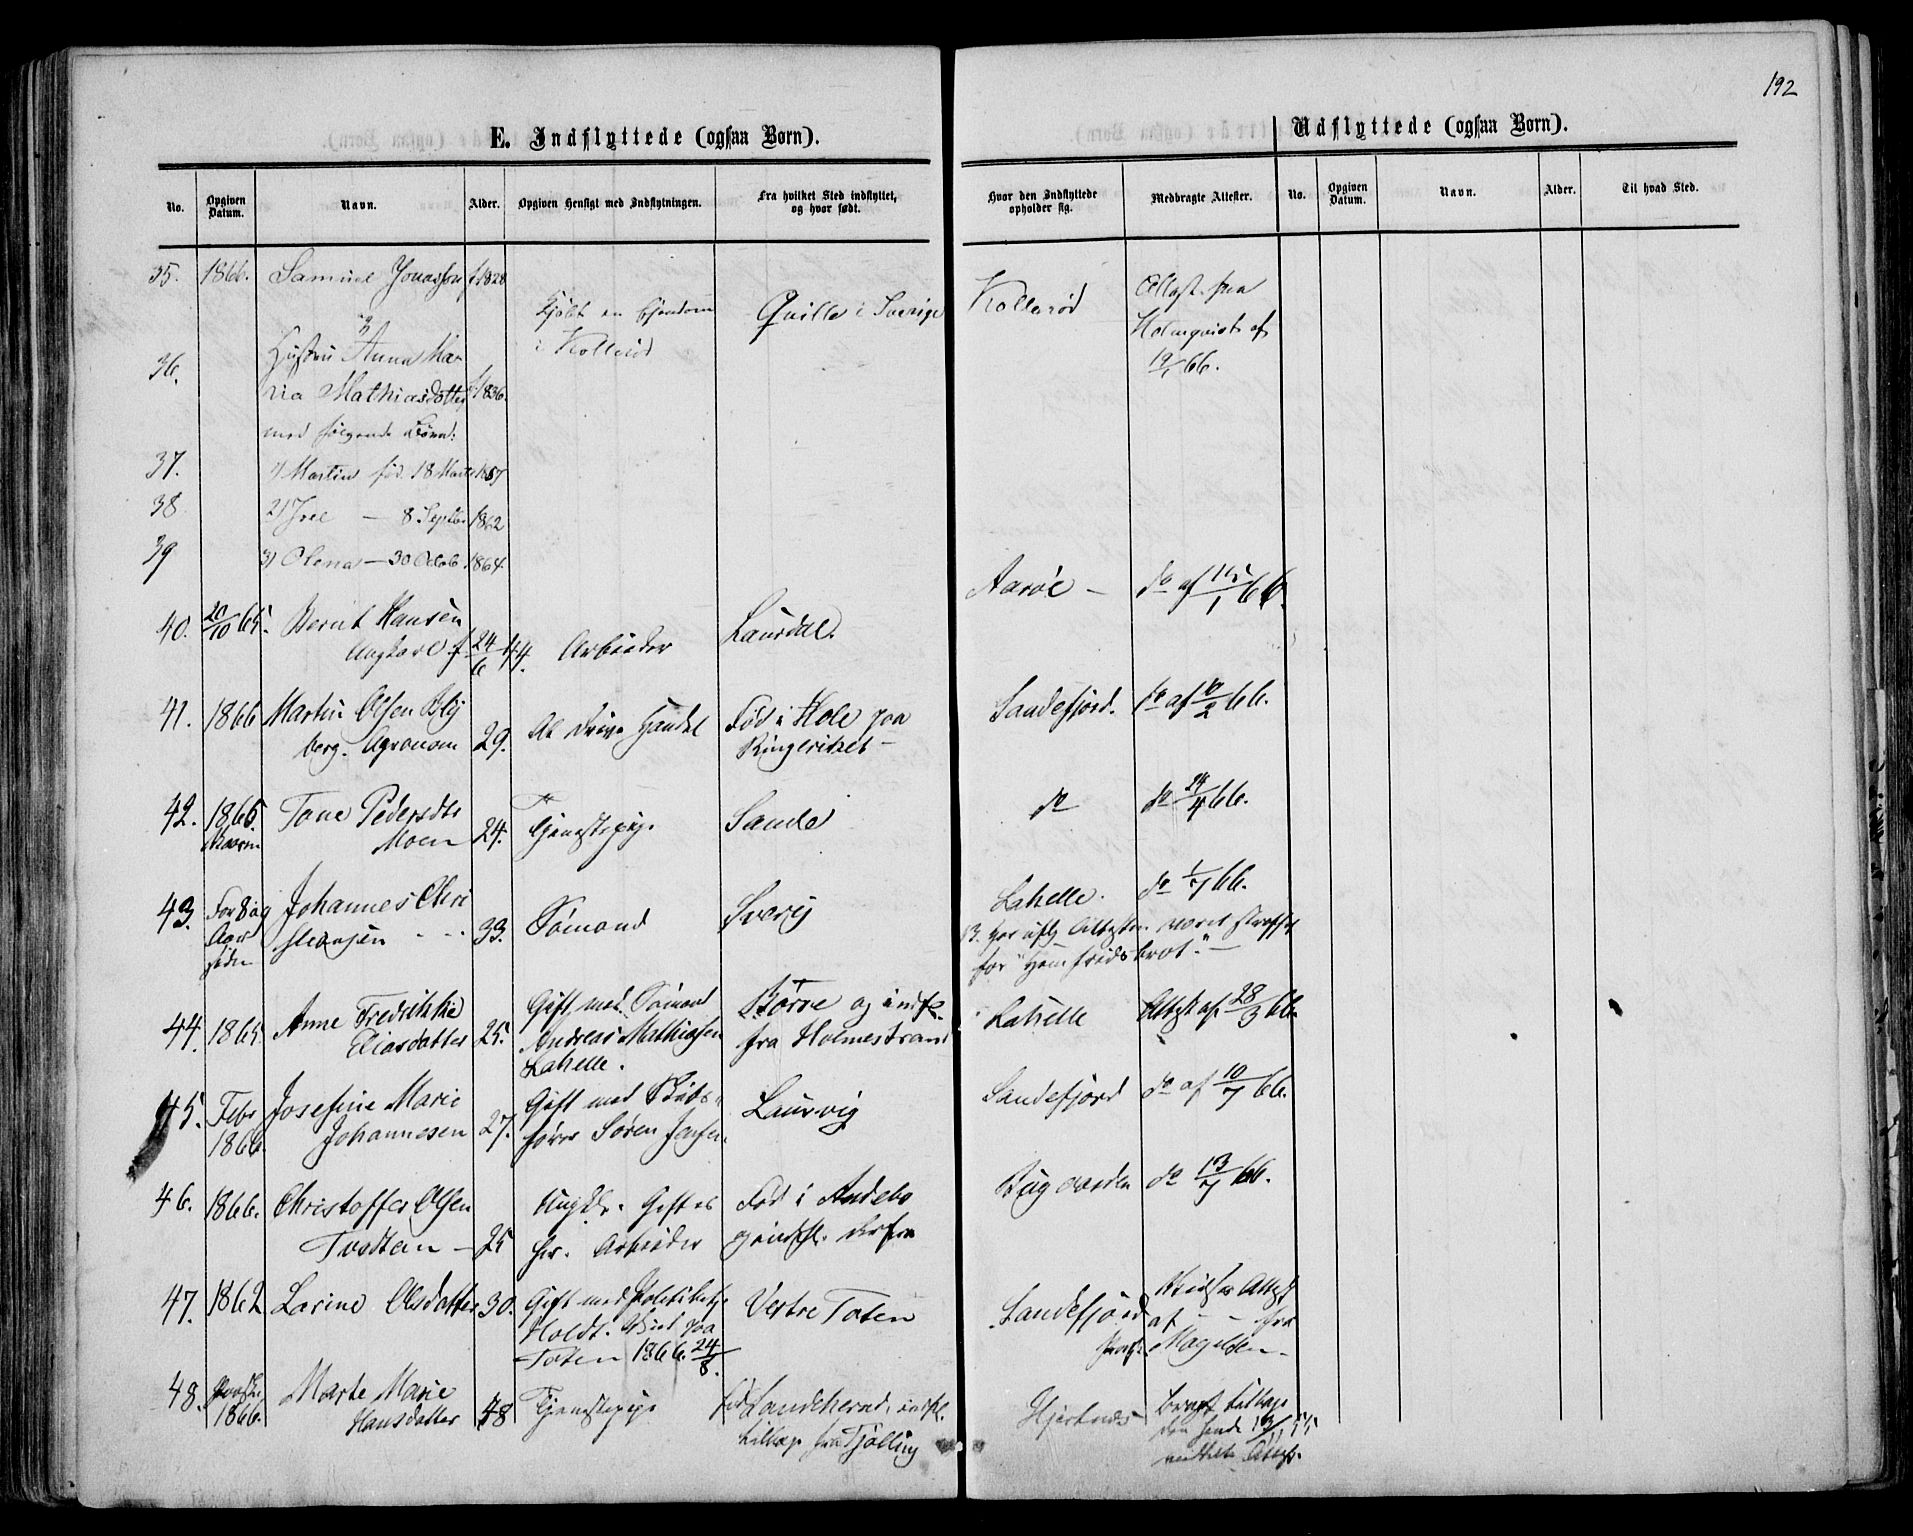 192
E. Indflyttede (ogsaa Børn).
Udflyttede (ogsaa Børn).
No. Opgiven Datum. Navn. Alder. Opgiven Hensigt med Indflytningen. Fra hvilket Sted indflyttet, og hvor født. Hvor den Indflyttede opholder sig. Medbragte Attester. No. Opgiven Datum. Navn. Alder. Til hvad Sted.
35. 1866. Samuel Jonasson f. 1828
Kjøbt en Ejendom Quille i Sverige Kollerød Attest fra
i Kollerød Holmqvist af
36. Hustru Anna Ma- 19/1 66.
ria Mathiasdatter f. 1836.
med følgende Børn:
37. 1) Martin fød. 18 Marts 1857
38 2) Joel — 8 Septbr 1862
39 3) Olena — 30 Octob. 1864
40. 20/10 65. Bernt Hansen Laurdal. Aarøe — do af 11/1 66.
Ungkarl f 24/6 44. Arbeider
41. 1866 Martin Olsen Bly Fød i Hole paa Sandefjord. do af 10/2 66.
berg. Agronom 29. At drive Handel Ringeriket —
42. 1866 Tone Pedersdtr Sande do do 24/4 66.
Moen 24. Tjenestepige
43. For 8 à 9 Johannes Chri Sverig Lahelle. do 1/7 66.
Aar stiansen 33. Sømand
siden for "Hemfridsbrot." —
44. 1865 Anne Fredrikke Gift med Sømand Børre og indfl. Lahelle Attest af 28/3 66.
Eliasdatter 25. Andreas Mathiasen fra Holmestrand
Lahelle.
45. Febr Josefine Marie Gift med Laurvig Sandefjord do af 10/7 66.
1866 Johannesen 27. Søren
46. 1866. Christoffer Olsen Ungk. Giftes Fød i Andebo Bugaarden do 13/7 66.
Tvedten — 25 her. Arbeider og indfl. derfra
47. 1862 Larine Olsdatter 30. Gift med Politibetj. Vestre Toten Sandefjord Attest
Holdt. Viet paa af — — fra
Toten 1866. 24/8.
48. 1866. Marte Marie 48 Tjenestepige fød Sandeherred, indfl. Hjertnes bragt tilbage
Hansdatter tilbage fra Tjølling den hende
meddelte Attest.